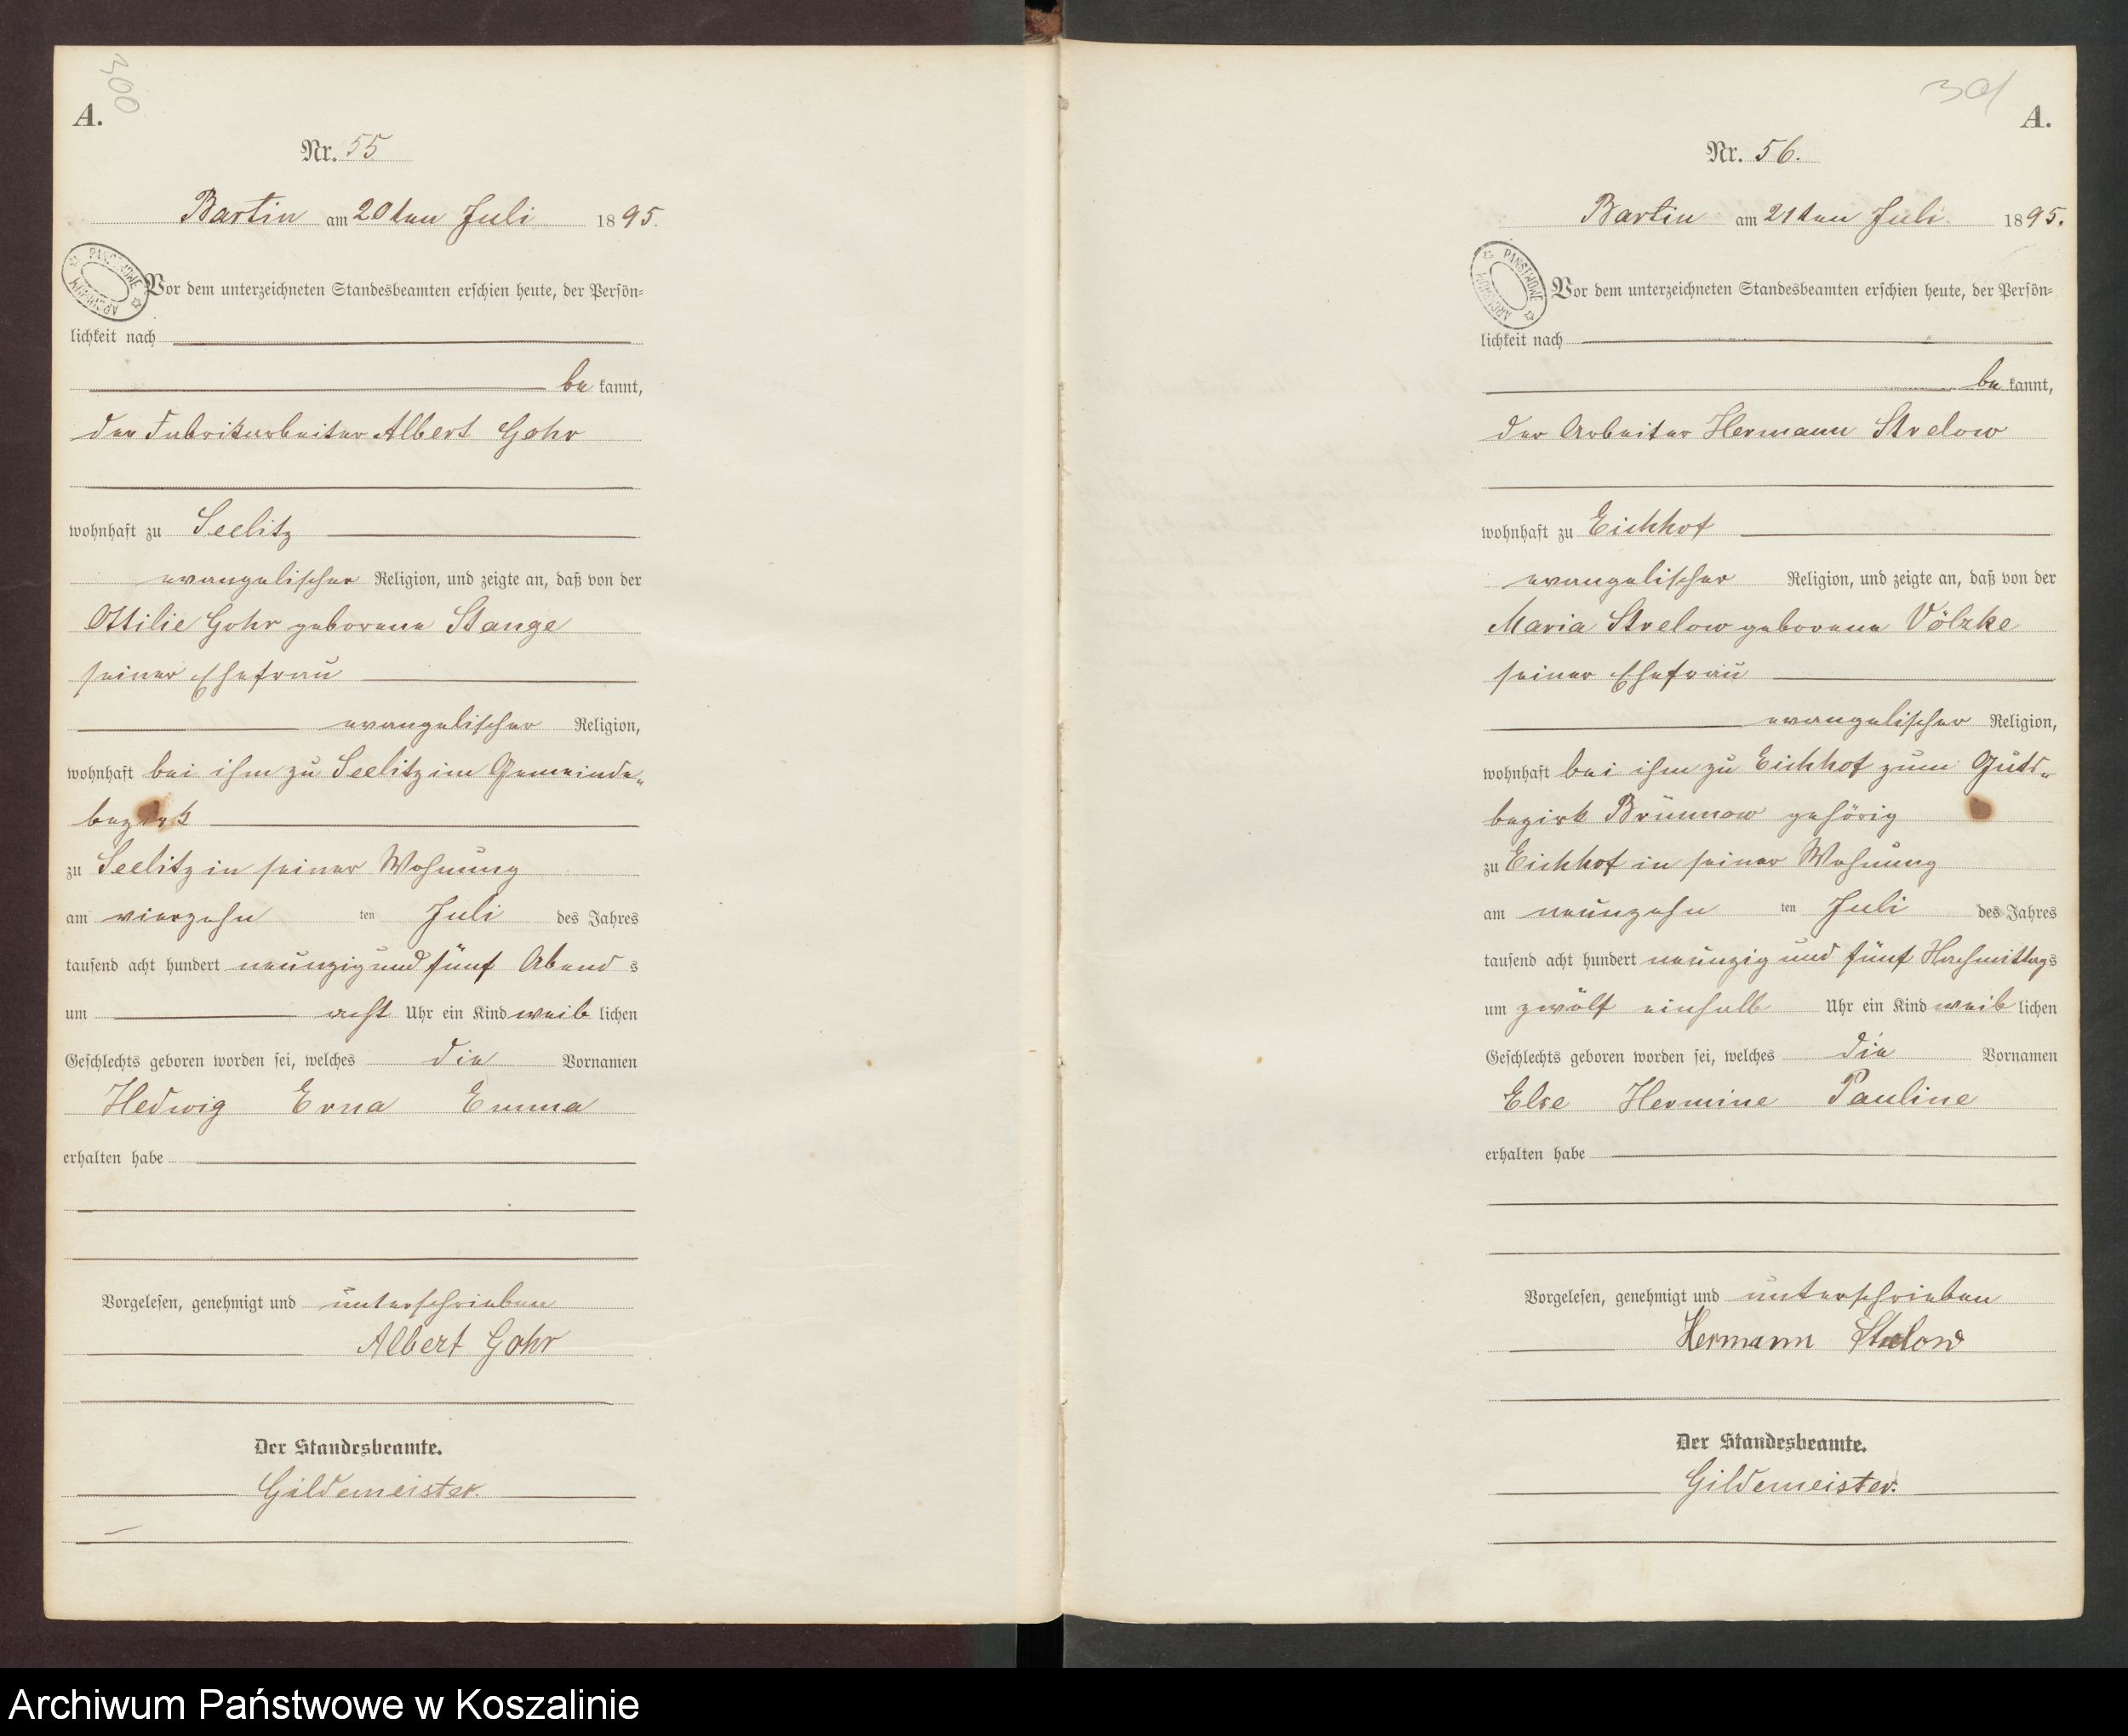 300
A.
Nr. 55
Bartin am 20ten Juli 1895.
PAŃSTWOWE ARCHIWUM
Vor dem unterzeichneten Standesbeamten erschien heute, der Persön=
lichkeit nach
be kannt,
der Fabrikarbeiter Albert Gohr
wohnhaft zu Seelitz
evangelischer Religion, und zeigte an, daß von der
Ottilie Gohr geborene Stange
seiner Ehefrau
evangelischer Religion,
wohnhaft bei ihm zu Seelitz im Gemeinde-
bezirk
zu Seelitz in seiner Wohnung
am vierzehn ten Juli des Jahres
tausend acht hundert neunzig und fünf Abend s
um acht Uhr ein Kind weib lichen
Geschlechts geboren worden sei, welches die Vornamen
Hedwig Erna Emma
erhalten habe
Vorgelesen, genehmigt und unterschrieben
Albert Gohr
Der Standesbeamte.
Gildemeister.
301
A.
Nr. 56.
Bartin am 21ten Juli 1895.
PAŃSTWOWE ARCHIWUM
Vor dem unterzeichneten Standesbeamten erschien heute, der Persön=
lichkeit nach
be kannt,
der Arbeiter Hermann Strelow
wohnhaft zu Eichhof
evangelischer Religion, und zeigte an, daß von der
Maria Strelow geborene Völzke
seiner Ehefrau
evangelischer Religion,
wohnhaft bei ihm zu Eichhof zum Guts-
bezirk Brünnow gehörig
zu Eichhof in seiner Wohnung
am neunzehn ten Juli des Jahres
tausend acht hundert neunzig und fünf Nachmittags
um zwölf einhalb Uhr ein Kind weib lichen
Geschlechts geboren worden sei, welches die Vornamen
Else Hermine Pauline
erhalten habe
Vorgelesen, genehmigt und unterschrieben
Hermann Strelow
Der Standesbeamte.
Gildemeister.
Archiwum Państwowe w Koszalinie